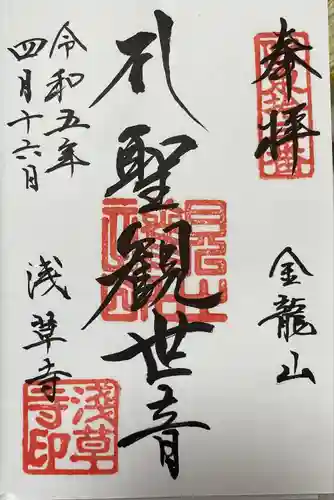 奉拝
金龍山
聖観世音
令和五年
四月十六日
浅草寺
浅草
寺印